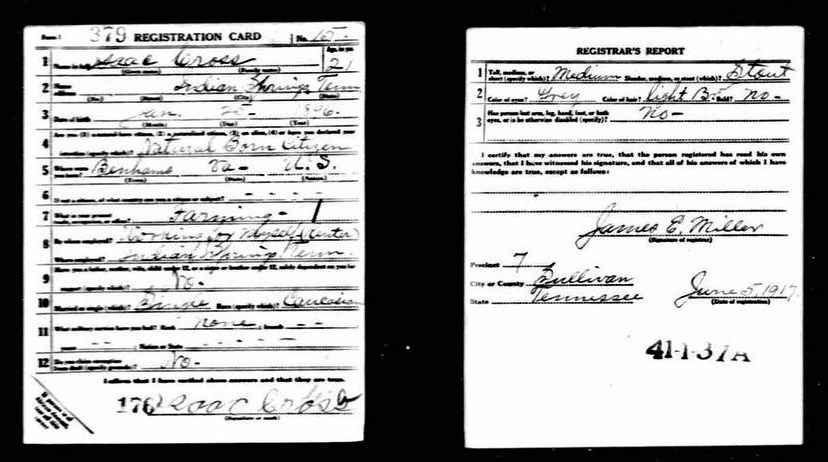 Form 1 379 REGISTRATION CARD No. 165
1 Name in full Isaac Cross Age, in yrs. 21
(Given name) (Family name)
2 Home address Indian Springs Tenn
(No.) (Street) (City) (State)
3 Date of birth Jan. 1896.
(Month) (Day) (Year)
4 Are you (1) a natural-born citizen, (2) a naturalized citizen, (3) an alien, (4) or have you declared your
intention (specify which)? Natural Born Citizen
5 Where were you born? Benhams Va U.S.
(Town) (State) (Nation)
6 If not a citizen, of what country are you a citizen or subject? - - - -
7 What is your present trade, occupation, or office? Farming -
8 By whom employed? Working for Myself (Renter)
Where employed? Indian Springs Tenn.
9 Have you a father, mother, wife, child under 12, or a sister or brother under 12, solely dependent on you for
support (specify which)? No -
10 Married or single (which)? Single Race (specify which)? Caucasian
11 What military service have you had? Rank none ; branch - -
years - - ; Nation or State - - - - -
12 Do you claim exemption from draft (specify grounds)? No -
I affirm that I have verified above answers and that they are true.
176 Isaac Cross
(Signature or mark)
REGISTRAR'S REPORT
1 Tall, medium, or short (specify which)? Medium Slender, medium, or stout (which)? Stout
2 Color of eyes? Grey Color of hair? light Br. Bald? No -
3 Has person lost arm, leg, hand, foot, or both
eyes, or is he otherwise disabled (specify)? No -
I certify that my answers are true, that the person registered has read his own
answers, that I have witnessed his signature, and that all of his answers of which I have
knowledge are true, except as follows:
James E. Miller
(Signature of registrar)
Precinct 7
City or County Sullivan
State Tennessee June 5, 1917
(Date of registration)
41-1-37A